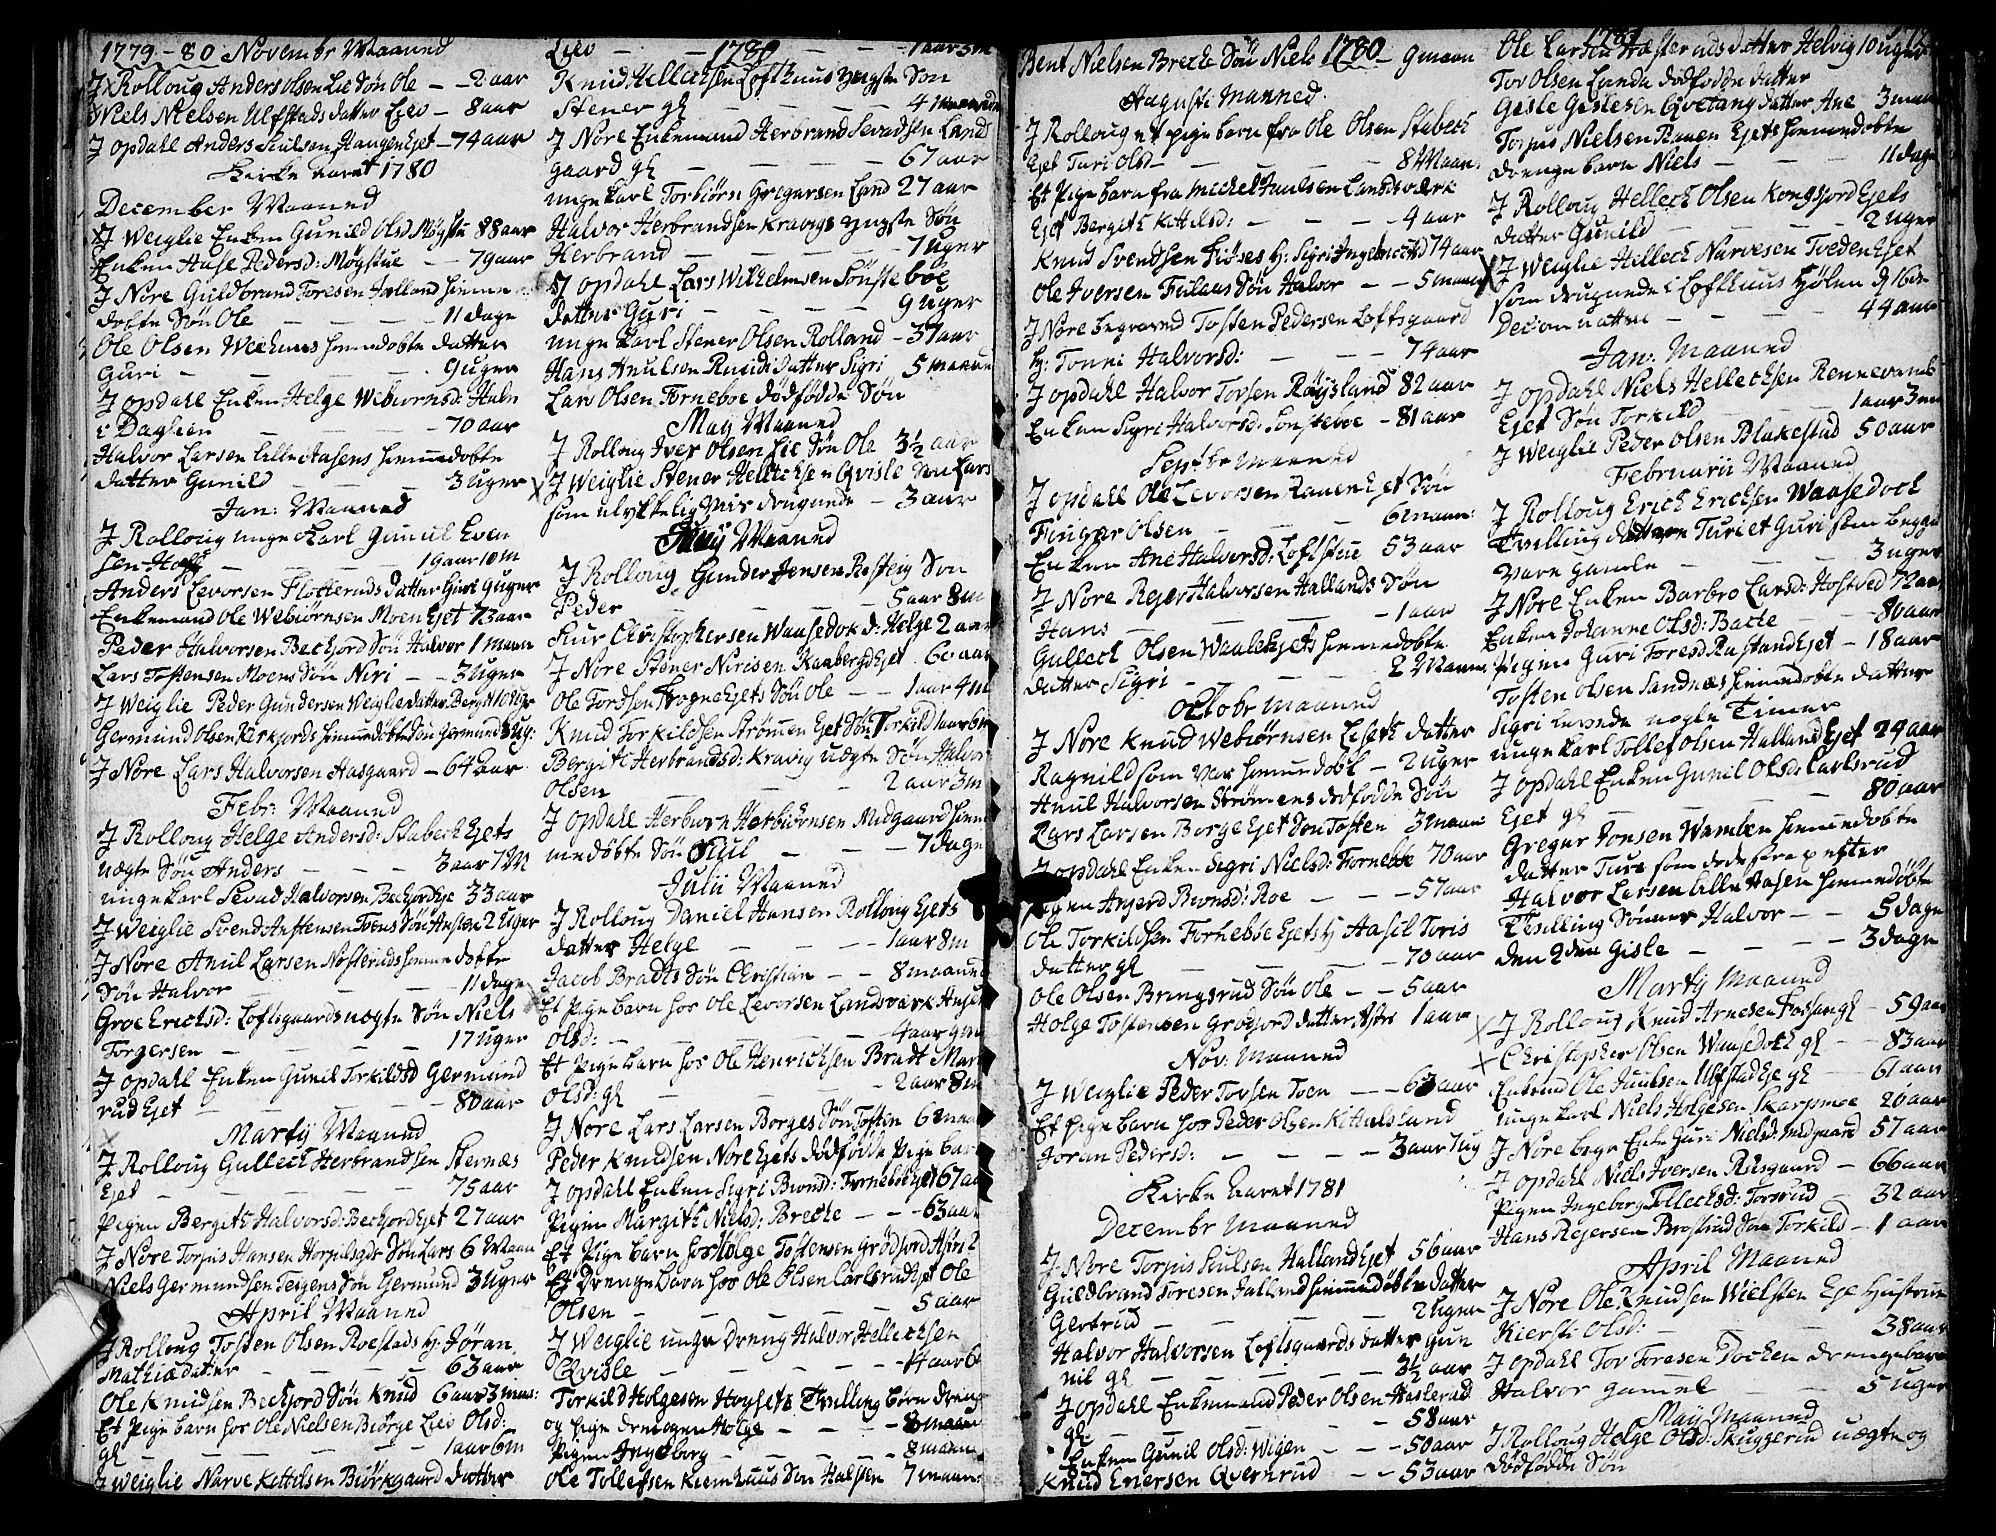 1779-80 Novembr Maaned
J Rolloug Anders Olsen Lie Søn Ole - - 2 aar
Niels Nielsen Ulfstads datter Liev - 8 aar
J Opdahl Anders Juulsen Haugen Ejet - 74 aar
Kirke Aaret 1780
December Maaned
J Weiglie Enken Gunild Olsd Møgstu 88 aar
Enken Aase Pedersd: Møgstue - - 79 aar
J Nore Guldbrand Toresen Jalland hiemme
døbte Søn Ole - - - - 11 dage
Ole Olsen hiemmedøbte datter
Guri - - - - 9 uger
J Opdahl Enken Helge Webiørnsd:
i Daglien - - - - 70 aar
Halvor Larsen Lille Aasens hiemmedøbte
datter Gunild - - - 3 uger
Jan: Maaned
J Rolloug unge Karl Gunnul Even
sen - - - 19 aar 10 m
Anders Levorsen Flotteruds datter Guri 9 uger
Enkemand Ole Webiørnsen Moen Ejet 73 aar
Peder Halvorsen Bechjord Søn Halvor 1 maan
Lars Tostensen Moens Søn Niri - - 3 uger
J Weiglie Peder Gundersen Weiglie datter Bergit 10 uger
Germund Olsen Kirkjords hiemmedøbte Søn Germund 8 ug:
J Nore Lars Halvorsen Aasgaard - 64 aar
Febr: Maaned
J Rolloug Helge Andersd: Stabech Ejets
uægte Søn Anders - - - 3 aar 7 M
unge karl Sevad Halvorsen Bechjord Eje 33 aar
J Weiglie Svend Anstensen Toens Søn Ansten 2 uger
J Nore Anul Larsen Nøsteruds hiemmedøbte
Søn Halvor - - - 11 dage
Groe Ericksd: Loftsgaards uægte Søn Niels
Torgersen - - - - 17 uger
J Opdahl Enken Gunil Torkildsd Germund
rud Ejet - - - - 80 aar
Marty Maaned
J Rolloug Gullech Herbrandsen Sternæs
Ejet - - - - 75 aar
Pigen Bergith Halvorsd: Bechjord Ejet 27 aar
J Nore Torjus Hansen Søn Lars 6 Maan
Niels Germundsen Teigens Søn Germund 3 uger
April Maaned
J Rolloug Tosten Olsen Roestads H: Jøran
Mathiædatter - - - 63 aar
Ole Knudsen Bechjord Søn Knud 6 aar 3 maa:
Et Pige barn hos Ole Nielsen Biørge Liev Olsd:
gl - - - - 1 aar 6 m
J Weiglie Narve Kittelsen Biørkgaard datter
Liev - - - 1 aar 3 m
1780
Knud Hellechsen Lofthuus yngste Søn
Stener gl - - - - 4 maaneder
J Nore Enkemand Herbrand Sevadsen Lands
gaard gl - - - - 67 aar
unge karl Torbiørn Gregarsen Land 27 aar
Halvor Herbrandsen Kravigs yngste Søn
Herbrand - - - - 7 uger
J Opdahl Lars Wilhelmsen Sønsteboe
datter Guri - - - - 9 uger
unge karl Stener Olsen Rolland - 37 aar
Hans Anulsen Ruudi datter Sigri 5 maan
Lars Olsen Forneboe dødfødde Søn
May Maaned
J Rolloug Iver Olsen Lie Søn Ole 3½ aar
J Weiglie Stener Hellechsen Qvisle Søn Lars
som ulykkelig Viis drugnede - 3 aar
Maaned
J Rolloug Gunder Jensen Søn
Peder - - - - 5 aar 8 m
Siur Christophersen Waasedok d: Helge 2 aar
J Nore Stener Nirisen Kaabergs Ejet 60 aar
Ole Tordsen Fogne Ejets Søn Ole - - 1 aar 4 m
Knud Torkildsen Strømen Ejet Søn Torkild 1 aar 6 m
Bergit Herbrandsd: Kravig uægte Søn Halvor
Olsen - - - - 2 aar 3 m
J Opdahl Herbiørn Herbiørnsen Midgaard hiem
medøbte Søn Juul - - - 7 dage
Julii Maaned
J Rolloug Daniel Hansen Rolloug Ejets
datter Helge - - - - 1 aar 8 m
Jacob Bradts Søn Christian - - 8 maaned
Et Pige barn hos Ole Levorsen Landsværk
Olsd: - - - - 4 aar 9 m
Et Pige barn hos Ole Henrichsen Bradt Mari
Olsd: gl - - - 2 aar 8 m
J Nore Lars Larsen Borges Søn Tosten 6 maa
Peder Knudsen Nore Ejets dødfødde Pige barn
J Opdahl Enken Sigri Biønsd: Fornebbe Ejet 67 aar
Pigen Margith Nielsd: Breche - - 63 aar
Et Pige barn hos Holge Tostensen Grodfjord
Et Drenge barn hos Ole Olsen Carlsrud Ejet Ole
Olsen - - - - 5 aar
J Weiglie unge Dreng Halvor Hellechsen
Qvisle - - - - 14 aar
Torkild Holgesen Tvilling børn dreng
og pige drengen Holge - - - 8 maan
Pigen Ingeborg - - - 8 maan
Ole Tollefsen Kiemhuus Søn Halsten 7 maan:
Bent Nielsen Breche Søn Niels 1780 - 9 maan
Augusti Maaned.
J Rolloug et pige barn fra Ole Olsen Stabech
Ejet Turi Olsd - - - 8 Maan:
Et Pige barn fra Michel Juulsen Landsværk
Ejet Bergith Kittilsd: - - - 4 aar
Knud Svendsen H: Sigri Ingebrechtsd 74 aar
Ole Iversen Søn Halvor - - 5 maan
J Nore begraved Tosten Pedersen Loftsgaard
H: Tonni Halvorsd: - - - 74 aar
J Opdahl Halvor Torsen Røysland 82 aar
Enken Sigri Halvorsd: Sønsteboe - 81 aar
Septbr Maaned
J Opdahl Ole Levorsen Rauen Ejet Søn
Olsen - - - 6 maan:
Enken Ane Halvorsd: Loftstue 53 aar
J Nore Rejer Halvorsen Hallands Søn
Hans - - - - 1 aar
Gullech Olsen Waale Ejets hiemmedøbte
datter Sigri - - - 2 Maan:
Octobr Maaned
J Nore Knud Webiørnsen Leseth datter
Ragnild som var hiemmedøbt - 2 uger
Anul Halvorsen Strømens dødfødde Søn
Lars Larsen Borge Ejet Søn Tosten 3 maan
J Opdahl Enken Sigri Nielsd: Fornebbe 70 aar
Pigen Angerd Biønsd: Roe - - - 57 aar
Ole Torkildsen Fornebbe Ejets H: Aasil Toris
datter gl - - - - 70 aar
Ole Olsen Bringsrud Søn Ole - - 5 aar
Holge Tostensen Grodfjord datter 1 aar
Nov: Maaned
J Weiglie Peder Torsen Toen - - 63 aar
Et pige barn hos Peder Olsen Kittelsland
Joran Pedersd: - - - 3 aar 7 ug
Kirke Aaret 1781
Decembr Maaned
J Nore Torjus Juulsen Halland Ejet 56 aar
Guldbrand Toresen Jalland hiemmedøbte datter
Gertrud - - - - 2 uger
Halvor Halvorsen Loftsgaards datter Gun
nil gl - - - - 3½ aar
J Opdahl Enkemand Peder Olsen Haslerud
gl - - - - 58 aar
Enken Gunil Olsd: Wigen - - - 50 aar
Knud Eversen Qvernrud - - 53 aar
1781
Ole Larsen datter Helvig 10 uger
Tor Olsen Lunda dødfødde datter
Gisle Gislesen Qvetang datter Ane 3 maan
Torjus Nielsen Rauen Ejets hiemmedøbte
drenge barn Niels - - - 11 dage
J Rolloug Hellech Olsen Kongsjord Ejets
datter Gunild - - - - 2 uger
J Weiglie Hellech Narvesen Tveden Ejet
som drugnede i Lofthuus Hølen d 16de
Decbr om natten - - - 44 aar
Jan: Maaned
J Opdahl Niels Hellechsen Rennevands
Ejet Søn Torkild - - - 1 aar 3 m
J Weiglie Peder Olsen Blakestad 50 aar
Februarii Maaned
J Rolloug Erich Erichsen Waasedoch
Tvilling døttre Turi et Guri som begge
vare gamle - - - 3 uger
J Nore Enken Barbro Larsd: Hostved 72 aar
Enken Johanne Olsd: Bacte - - 80 aar
Pigen Guri Toresd Rustand Ejet - 18 aar
Tosten Olsen Sandnæs hiemmedøbte datter
Sigri levede nogle Timer
unge karl Tollef Olsen Halland Ejet 24 aar
J Opdahl Enken Gunil Olsd: Carlsrud
Ejet gl - - - - 80 aar
Gregar Jonsen Wamben hiemmedøbte
datter Turi som døde strax efter
Halvor Larsen Lille Aasen hiemmedøbte
Tvilling Sønner Halvor - - 5 dage
den 2den Gisle - - - 3 dage
Marty Maaned
J Rolloug Knud Arnesen Fossan gl - 59 aar
Christopher Olsen Waasedoch gl - 83 aar
Ole Juulsen Ulfstad Eje gl - 61 aar
unge karl Niels Holgesen Skarpmoe 20 aar
J Nore begr Enke Guri Nielsd: Midgaard 57 aar
J Opdahl Niels Iversen Ruusgaard - 66 aar
Pigen Ingeborg Tollechsd: Torsrud - 32 aar
Hans Rejersen Brøstrud Søn Torkild - 1 aar
April Maaned
J Nore Ole Knudsen Wielsten Eje Hustrue
Kiersti Olsd: - - - - 38 aar
J Opdahl Tor Toresen drengebarn
Halvor gammel - - - 5 uger
Maij Maaned
J Rolloug Helge Olsd: Skuggerud uægte og
dødfødde Søn